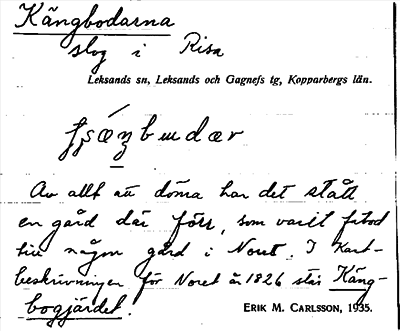 Kängbodarna
slog i Risa
Leksands sn, Leksands och Gagnefs tg, Kopparbergs län.
Av allt att döma har det stått
en gård där förr, som varit fäbod
till någon gård i Noret. I Kart-
beskrivningen för Noret år 1826 står Käng-
bogjärdet.
ERIK M. CARLSSON, 1935.